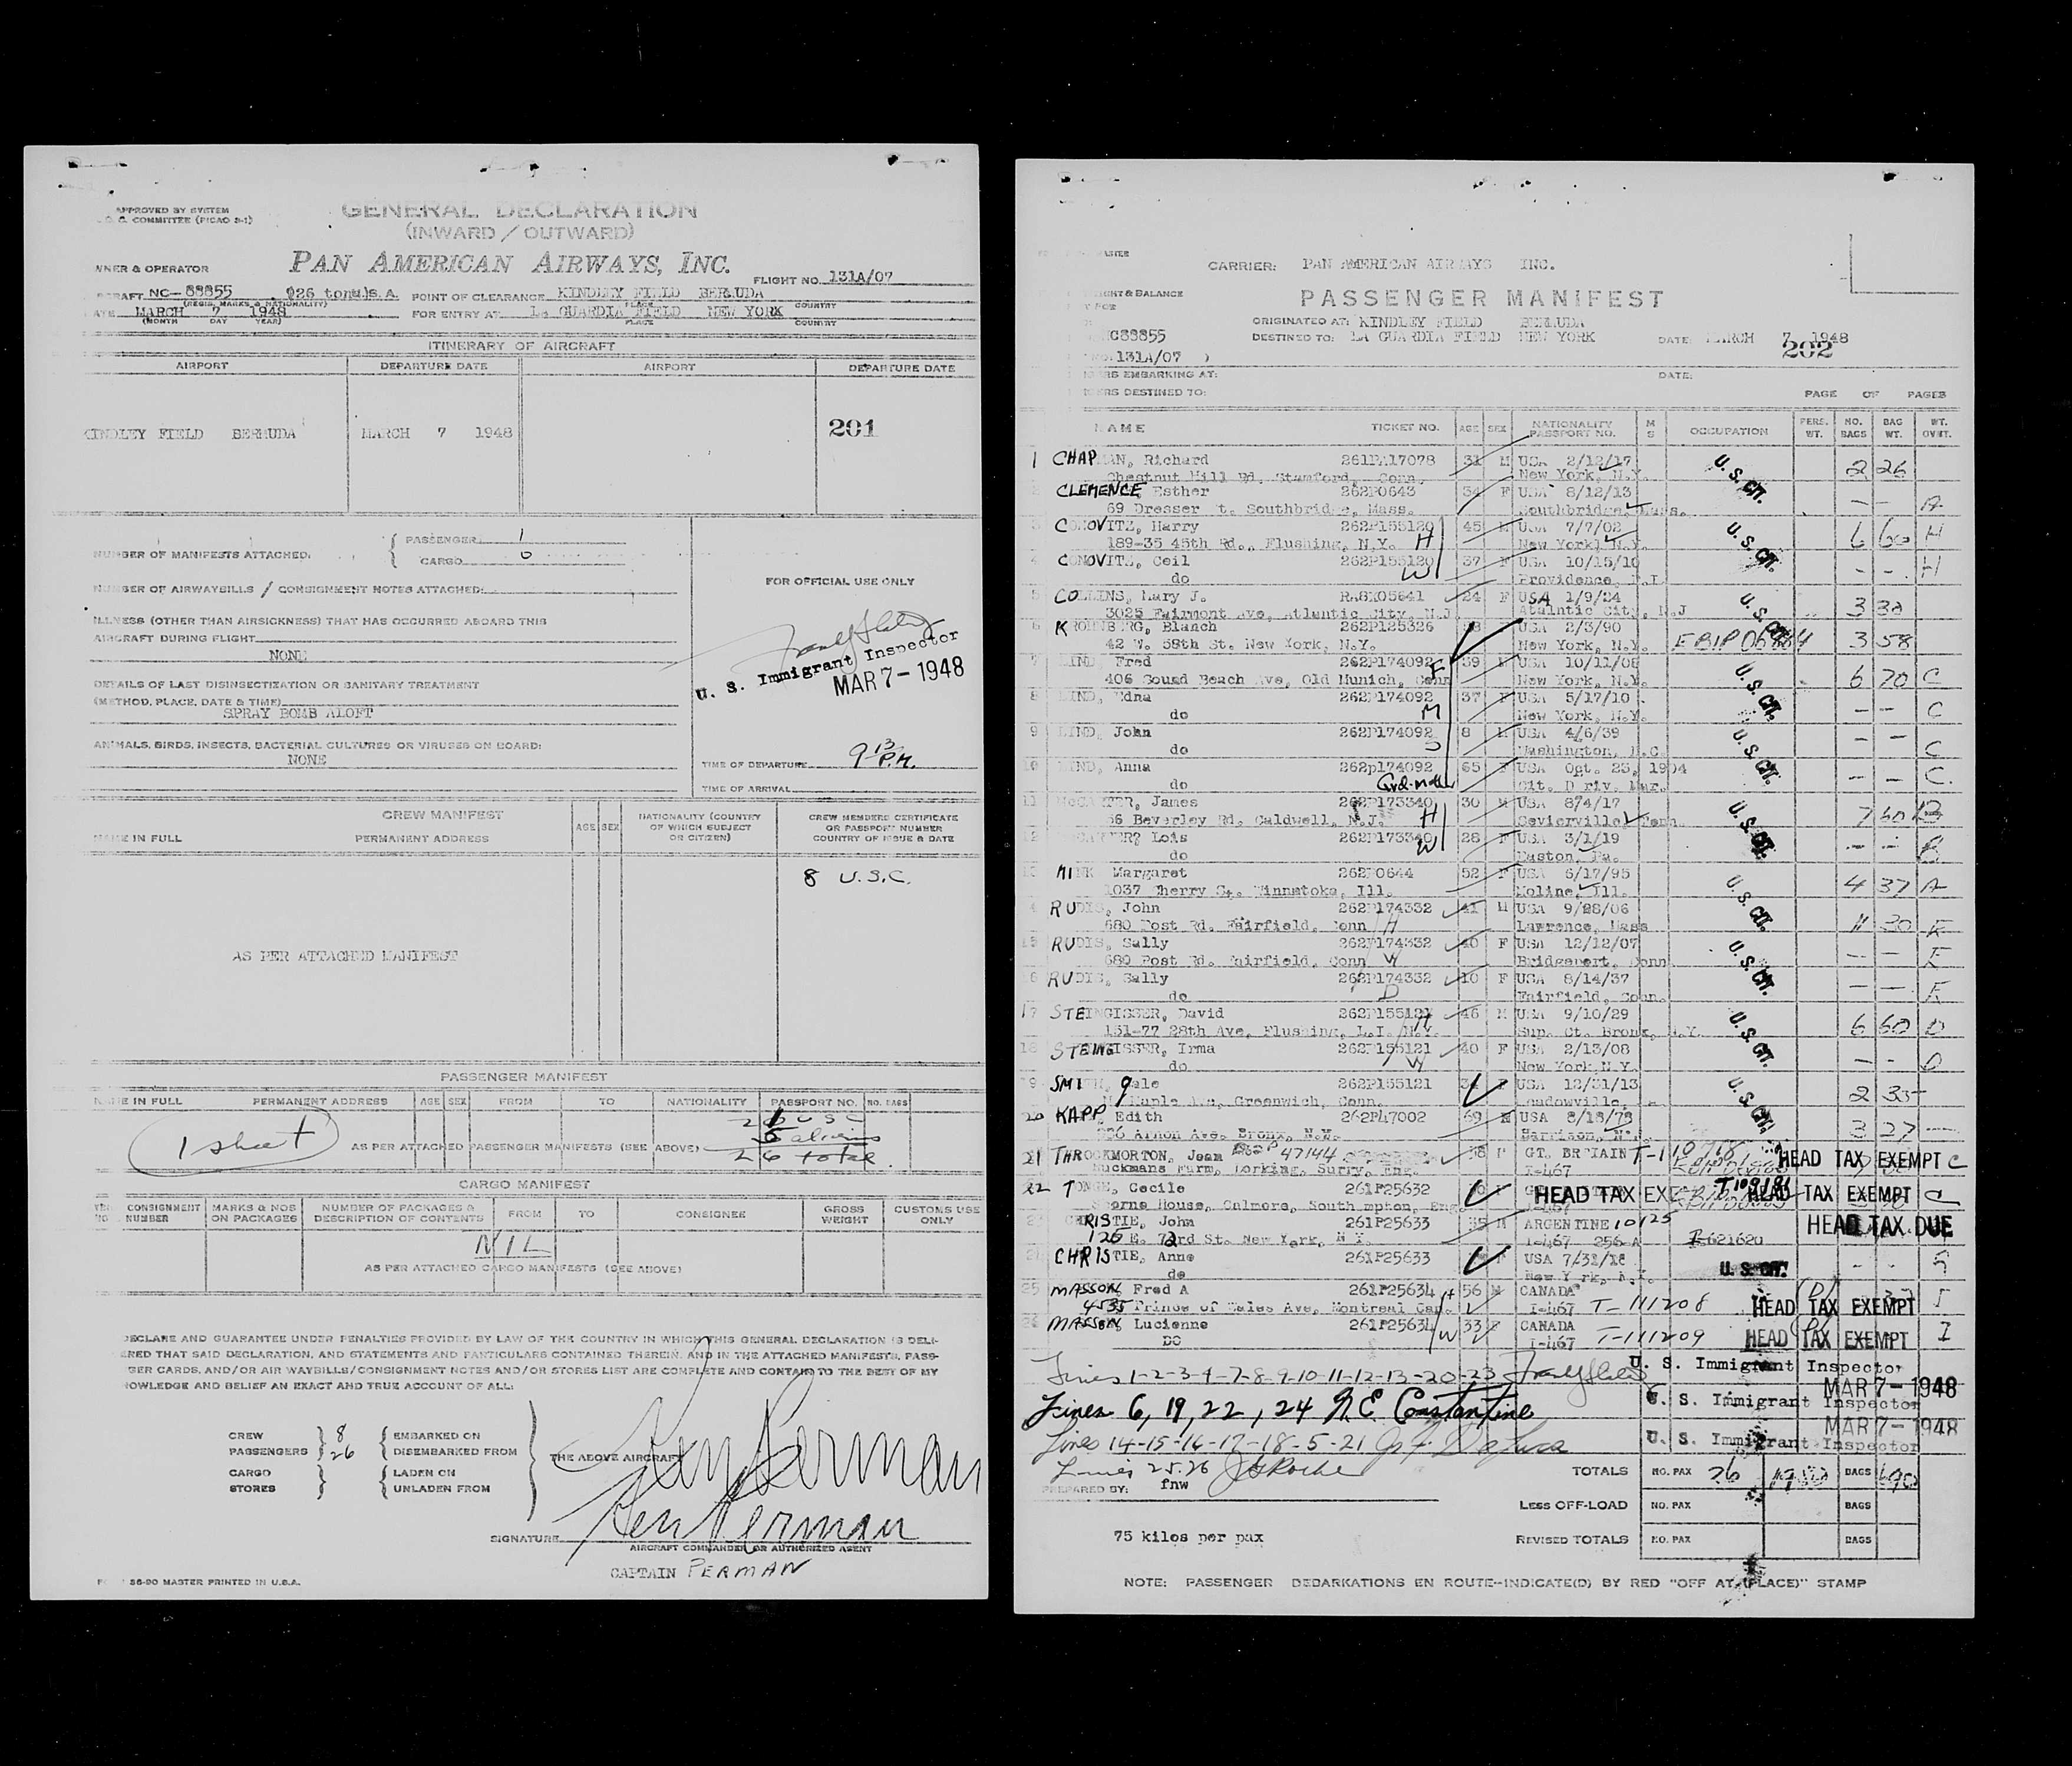 APPROVED BY SYSTEM
COMMITTEE (PICAO 3-1)
GENERAL DECLARATION
(INWARD / OUTWARD)
PAN AMERICAN AIRWAYS, INC.
WNER & OPERATOR
FLIGHT NO. 131A/07
RAFT NC-88855 026 tonu.S.A. POINT OF CLEARANCE KINDLEY FIELD BERMUDA
(REGIS. MARKS & NATIONALITY) PLACE COUNTRY
ATE MARCH 7 1948 FOR ENTRY AT LA GUARDIA FIELD NEW YORK
(MONTH DAY YEAR) PLACE COUNTRY
ITINERARY OF AIRCRAFT
AIRPORT DEPARTURE DATE AIRPORT DEPARTURE DATE
KINDLEY FIELD BERMUDA MARCH 7 1948 201
NUMBER OF MANIFESTS ATTACHED: PASSENGER 1
CARGO 0
NUMBER OF AIRWAYBILLS / CONSIGNMENT NOTES ATTACHED:
ILLNESS (OTHER THAN AIRSICKNESS) THAT HAS OCCURRED ABOARD THIS
AIRCRAFT DURING FLIGHT
NONE
DETAILS OF LAST DISINSECTIZATION OR SANITARY TREATMENT
(METHOD, PLACE, DATE & TIME)
SPRAY BOMB ALOFT
ANIMALS, BIRDS, INSECTS, BACTERIAL CULTURES OR VIRUSES ON BOARD:
NONE
FOR OFFICIAL USE ONLY
U. S. Immigrant Inspector
MAR 7 - 1948
TIME OF DEPARTURE 9 13 P.M.
TIME OF ARRIVAL
CREW MANIFEST
NAME IN FULL PERMANENT ADDRESS AGE SEX NATIONALITY (COUNTRY OF WHICH SUBJECT OR CITIZEN) CREW MEMBERS CERTIFICATE OR PASSPORT NUMBER COUNTRY OF ISSUE & DATE
8 U.S.C.
AS PER ATTACHED MANIFEST
PASSENGER MANIFEST
NAME IN FULL PERMANENT ADDRESS AGE SEX FROM TO NATIONALITY PASSPORT NO. NO. BAGS
2 1 U S C
1 sheet AS PER ATTACHED PASSENGER MANIFESTS (SEE ABOVE) 5 aliens
26 total
CARGO MANIFEST
CONSIGNMENT NUMBER MARKS & NOS ON PACKAGES NUMBER OF PACKAGES & DESCRIPTION OF CONTENTS FROM TO CONSIGNEE GROSS WEIGHT CUSTOMS USE ONLY
NIL
AS PER ATTACHED CARGO MANIFESTS (SEE ABOVE)
DECLARE AND GUARANTEE UNDER PENALTIES PROVIDED BY LAW OF THE COUNTRY IN WHICH THIS GENERAL DECLARATION IS DELI-
ERED THAT SAID DECLARATION, AND STATEMENTS AND PARTICULARS CONTAINED THEREIN, AND IN THE ATTACHED MANIFESTS, PASS-
GER CARDS, AND/OR AIR WAYBILLS/CONSIGNMENT NOTES AND/OR STORES LIST ARE COMPLETE AND CONTAIN TO THE BEST OF MY
NOWLEDGE AND BELIEF AN EXACT AND TRUE ACCOUNT OF ALL:
CREW 8 EMBARKED ON
PASSENGERS 26 DISEMBARKED FROM
THE ABOVE AIRCRAFT
CARGO LADEN ON
STORES UNLADEN FROM
Ken Perman
SIGNATURE
AIRCRAFT COMMANDER OR AUTHORIZED AGENT
CAPTAIN PERMAN
36-90 MASTER PRINTED IN U.S.A.
CARRIER: PAN AMERICAN AIRWAYS INC.
PASSENGER MANIFEST
ORIGINATED AT: KINDLEY FIELD BERMUDA
C88855 DESTINED TO: LA GUARDIA FIELD NEW YORK DATE: MARCH 7, 1948
202
131A/07
RS EMBARKING AT: DATE:
RS DESTINED TO:
PAGE OF PAGES
NAME TICKET NO. AGE SEX NATIONALITY PASSPORT NO. M S OCCUPATION PERS. WT. NO. BAGS BAG WT. WT. OVWT.
1 CHAPMAN, Richard 261P117078 31 M USA 2/12/17 U. S. CIT. 2 26
Chestnut Hill Rd. Stamford, Conn. New York, N.Y.
CLEMENCE Esther 262P0643 34 F USA 8/12/13 — — A
69 Dresser t. Southbridge, Mass. Southbridge, Mass.
3 CONOVITZ, Harry 262P155120 45 M USA 7/7/02 U. S. CIT. 6 60 H
189-35 45th Rd., Flushing, N.Y. H New York, N.Y.
4 CONOVITZ, Ceil 262P155120 37 F USA 10/15/10 - - H
do W Providence, R.I.
5 COLLINS, Mary J. 24 F USA 1/9/24 U. S. CIT. 3 32
3025 Fairmont Ave, Atlantic City, N.J Atalntic City, N.J
6 KRONENBERG, Blanch 262P125326 USA 2/3/90 3 58
42 W. 58th St. New York, N.Y. New York, N.Y.
7 LIND, Fred 262P174092 39 M USA 10/11/08 U. S. CIT. 6 70 C
406 Sound Beach Ave, Old Munich, Conn F New York, N.Y.
8 LIND, Edna 262P174092 37 F USA 5/17/10 — — C
do M New York, N.Y.
9 LIND, John 262P174092 8 M USA 4/6/39 U. S. CIT. — — C
do S Washington, D.C.
10 LIND, Anna 262p174092 65 F USA Oct. 23, 1904 — — C.
do Grd-mother Cit. D riv. Mar.
11 James 262P173340 30 M USA 8/4/17 U. S. CIT. 7 60 B
56 Beverley Rd. Caldwell, N.J. H Sevierville, Tenn.
12 Lois 262P173340 28 F USA 3/1/19 — — B
do W Easton, Pa.
13 MINK Margaret 262P0644 52 F USA 6/17/95 U. S. CIT. 4 37 A
1037 Cherry St. Winnatoka, Ill. Moline, Ill.
RUDIS, John 262P174332 41 M USA 9/28/06 11 30 E
680 Post Rd. Fairfield, Conn H Lawrence, Mass
15 RUDIS, Sally 262P174332 40 F USA 12/12/07 U. S. CIT. — — E
680 Post Rd. Fairfield, Conn W Bridgeport, Conn
16 RUDIS, Sally 262P174332 10 F USA 8/14/37 — — E
do D Fairfield, Conn.
17 STEINGISSER, David 262P155121 46 M USA 9/10/29 U. S. CIT. 6 60 D
151-77 28th Ave, Flushing, L.I. N.Y. H Sup. Ct. Bronx, N.Y.
18 STEINGISSER, Irma 262P155121 40 F USA 2/13/08 — — D
do W New York, N.Y.
19 SMITH, 262P155121 34 F USA 12/31/13 U. S. CIT. 2 35
Maple Ave, Greenwich, Conn. Loudowville,
20 KAPP, Edith 262P47002 69 USA 8/18/78 3 27 —
Arnon Ave. Bronx, N.Y. Garrison, N.Y.
21 THROCKMORTON, Jean 262P 47144 GT. BRTIAIN T-110718 HEAD TAX EXEMPT C
Buckmans Farm, Dorking, Surry, Eng. I-467
22 Cecile 261P25632 HEAD TAX EXE HEAD TAX EXEMPT C
orne House, Culmore, Southampton, Eng.
23 CHRISTIE, John 261P25633 35 M ARGENTINE 10125 HEAD TAX DUE
125 E. 72rd St. New York, N Y. I-467 256 A
CHRISTIE, Anne 261P25633 F USA 7/31/18 U. S. CIT. - -
do New Y rk, N.Y.
25 MASSON, Fred A 261P25634 H 56 M CANADA HEAD TAX EXEMPT I
4535 Prince of Wales Ave, Montreal Can. I-467 T-111208
26 MASSON, Lucienne 261P25634 W 33 F CANADA HEAD TAX EXEMPT I
DO I-467 T-111209
Lines 1-2-3-4-7-8-9-10-11-12-13-20-23 U. S. Immigrant Inspector
MAR 7 - 1948
Lines 6, 19, 22, 24 N.E. Constantine U. S. Immigrant Inspector
MAR 7 - 1948
Lines 14-15-16-17-18-5-21 U. S. Immigrant Inspector
Lines 25.26
PREPARED BY: fnw
TOTALS NO. PAX 26 BAGS 690
LESS OFF-LOAD NO. PAX BAGS
75 kilos per pax REVISED TOTALS NO. PAX BAGS
NOTE: PASSENGER DEBARKATIONS EN ROUTE--INDICATE(D) BY RED "OFF AT (PLACE)" STAMP